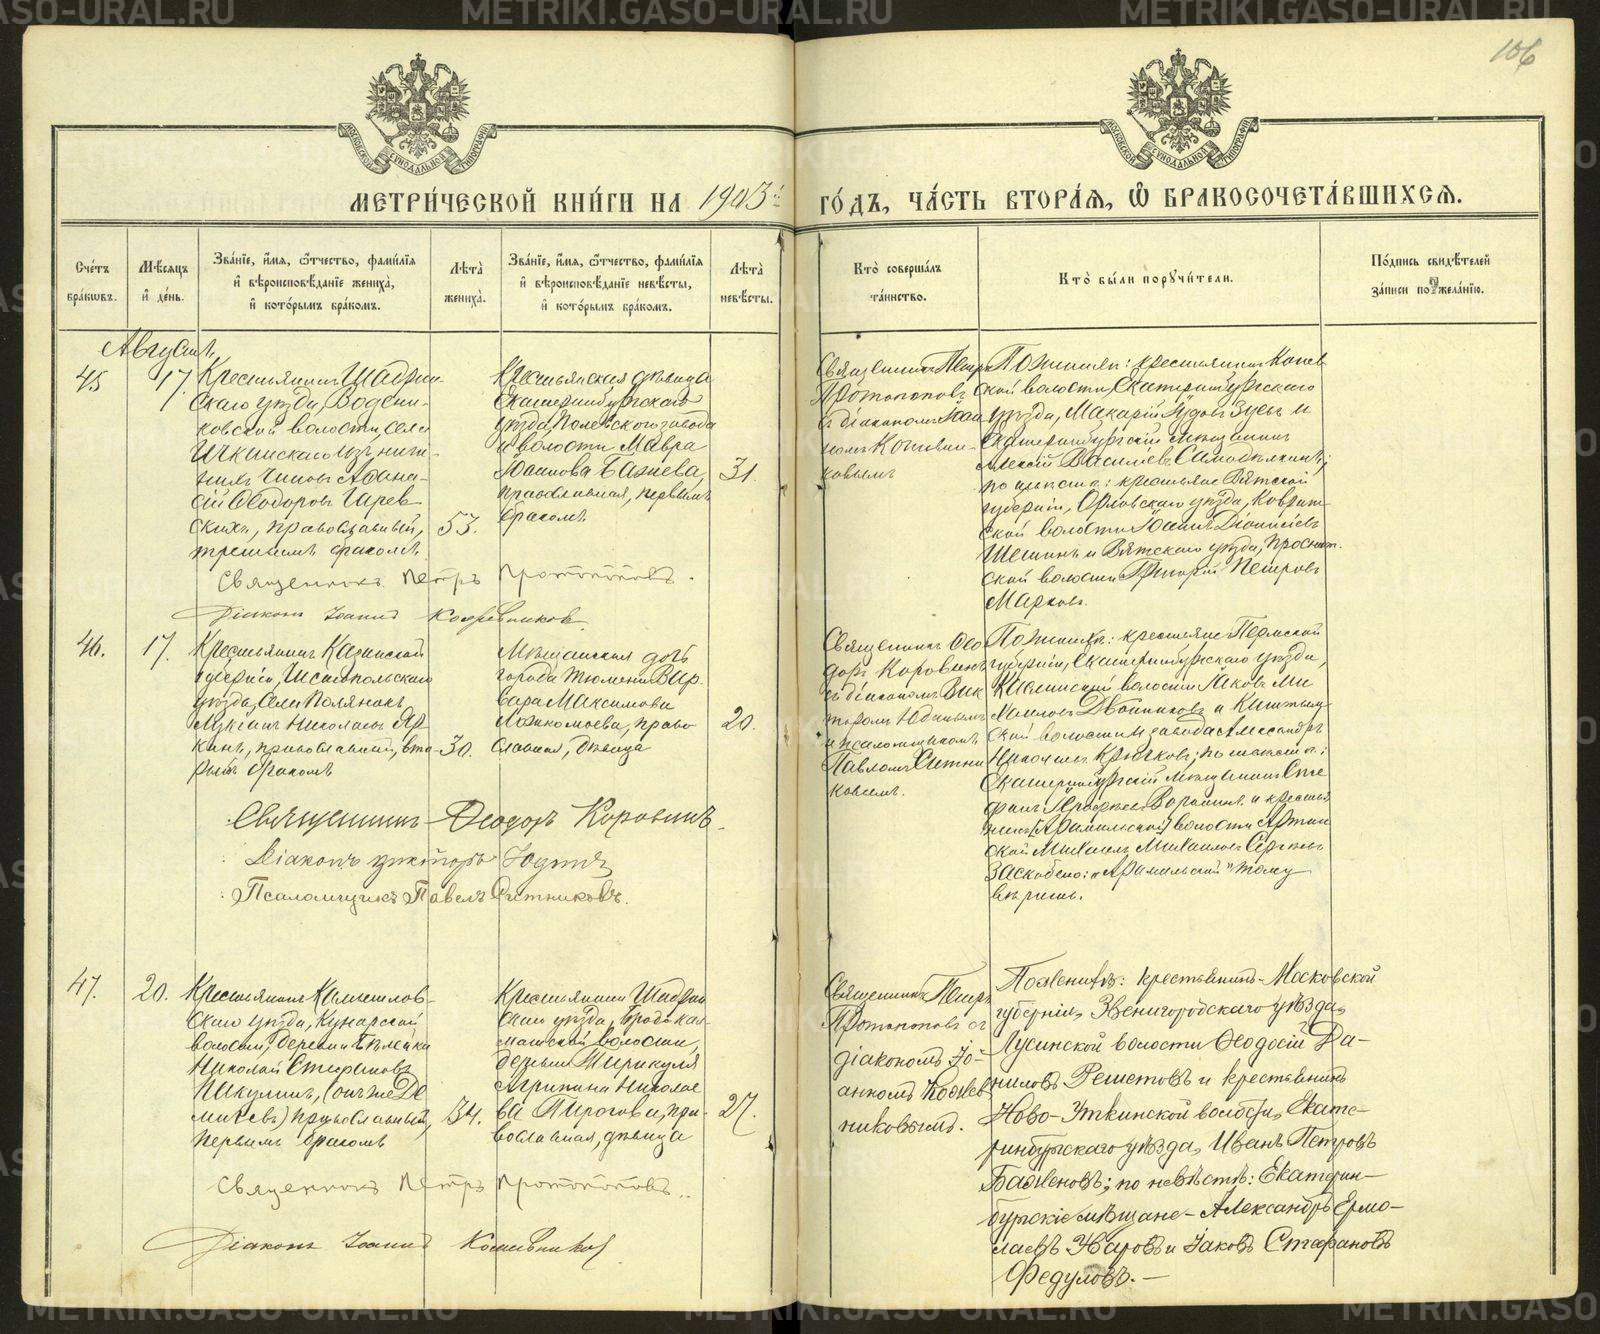 106
МОСКОВСКОЙ СѴНОДАЛЬНОЙ ТИПОГРАФІИ
МОСКОВСКОЙ СѴНОДАЛЬНОЙ ТИПОГРАФІИ
МЕТРИ́ЧЕСКОЙ КНИ́ГИ НА 1903й ГО́ДЪ, ЧА́СТЬ ВТОРА́Я, Ѽ БРАКОСОЧЕТА́ВШИХСЯ.
Сче́тъ бра́кωвъ.
Мѣ́сяцъ и҆ де́нь.
Зва́нїе, и҆́мя, ѻ҆́тчество, фами́лїя и҆ вѣроисповѣ́данїе жениха̀, и҆ кото́рымъ бра́комъ.
Лѣ́та̀ жениха̀.
Зва́нїе, и҆́мя, ѻ҆́тчество, фами́лїя и҆ вѣроисповѣ́данїе невѣ́сты, и҆ кото́рымъ бра́комъ.
Лѣ́та̀ невѣ́сты.
Кто̀ соверша́лъ та́инство.
Кто̀ бы́ли поручи́тели.
По́дпись свидѣ́телей за́писи по жела́нїю.
Августъ
45
17.
Крестьянинъ Шадрин-
скаго уѣзда, Водени-
ковской волости, села
православный,
третьимъ бракомъ
53.
Крестьянская дѣвица
Екатеринбургскаго
уѣзда, Полевского завода
и волости Мавра
Іоаннова Бажева,
православная, первымъ
бракомъ
31.
Священникъ Петръ
Протопоповъ
съ діакономъ Іоан
номъ Кожевни-
ковымъ
По женихѣ: крестьянинъ Конев
ской волости, Екатеринбургскаго
уѣзда, Макарій Зуевъ и
Екатеринбургскій мѣщанинъ
Алексій Васильевъ
по невѣстѣ: крестьяне Вятской
губерніи, Орловскаго уѣзда,
ской волости Іоаннъ Діонисіевъ
и Вятскаго уѣзда, Просниц-
ской волости Григорій Петровъ
Марковъ.
Священникъ Петръ Протопоповъ.
Діаконъ Іоаннъ Кожевниковъ.
46.
17.
Крестьянинъ Казанской
губерніи, Чистопольскаго
уѣзда, села Полянокъ
Лукіанъ Николаевъ Яр
кинъ, православный, вто-
рымъ бракомъ
30.
Мѣщанская дочь
города Тюмени Вар-
вара Максимова
православная, дѣвица
20.
Священникъ Ѳео
доръ Коровинъ
съ діакономъ Вик
торомъ Юдинымъ
и псаломщикомъ
Павломъ Ситни
ковымъ.
По женихѣ: крестьяне Пермской
губерніи, Екатеринбургскаго уѣзда,
Каслинской волости Іаковъ Ми
хаиловъ Двойниковъ и Кыштым-
ской волости и завода Александръ
Николаевъ Крючковъ; по невѣстѣ:
Екатеринбургскій мѣщанинъ Сте
фанъ и крестья
нинъ [Арамильской] волости
ской Михаилъ Михаиловъ
Заскоблено: "Арамильской" тому
вѣрить.
Священникъ Ѳеодоръ Коровинъ.
Діаконъ Викторъ Юдинъ
Псаломщикъ Павелъ Ситниковъ.
47.
20.
Крестьянинъ Камышлов-
скаго уѣзда, Кунарской
волости, деревни Бѣлейки
Николай Стефановъ
Никулинъ, (онъ же Де
мидовъ) православный,
первымъ бракомъ
34.
Крестьянка Шадрин
скаго уѣзда, Бродокал-
макской волости,
деревни Чирикуля
Агрипина Николае
ва Пирогова, пра-
вославная, дѣвица
27.
Священникъ Петръ
Протопоповъ съ
діакономъ Іо-
анномъ Кожев
никовымъ.
По женихѣ: крестьянинъ - Московской
губерніи, Звенигородскаго уѣзда,
Лусинской волости Ѳеодосій Да-
ниловъ Решетовъ и крестьянинъ
Ново-Уткинской волости, Екате-
ринбургскаго уѣзда, Иванъ Петровъ
Баженовъ; по невѣстѣ: Екатерин-
бургскіе мѣщане - Александръ Ермо-
лаевъ Уваровъ и Іаковъ Стефановъ
Федуловъ. -
Священникъ Петръ Протопоповъ.
Діаконъ Іоаннъ Кожевниковъ
METRIKI.GASO-URAL.RU